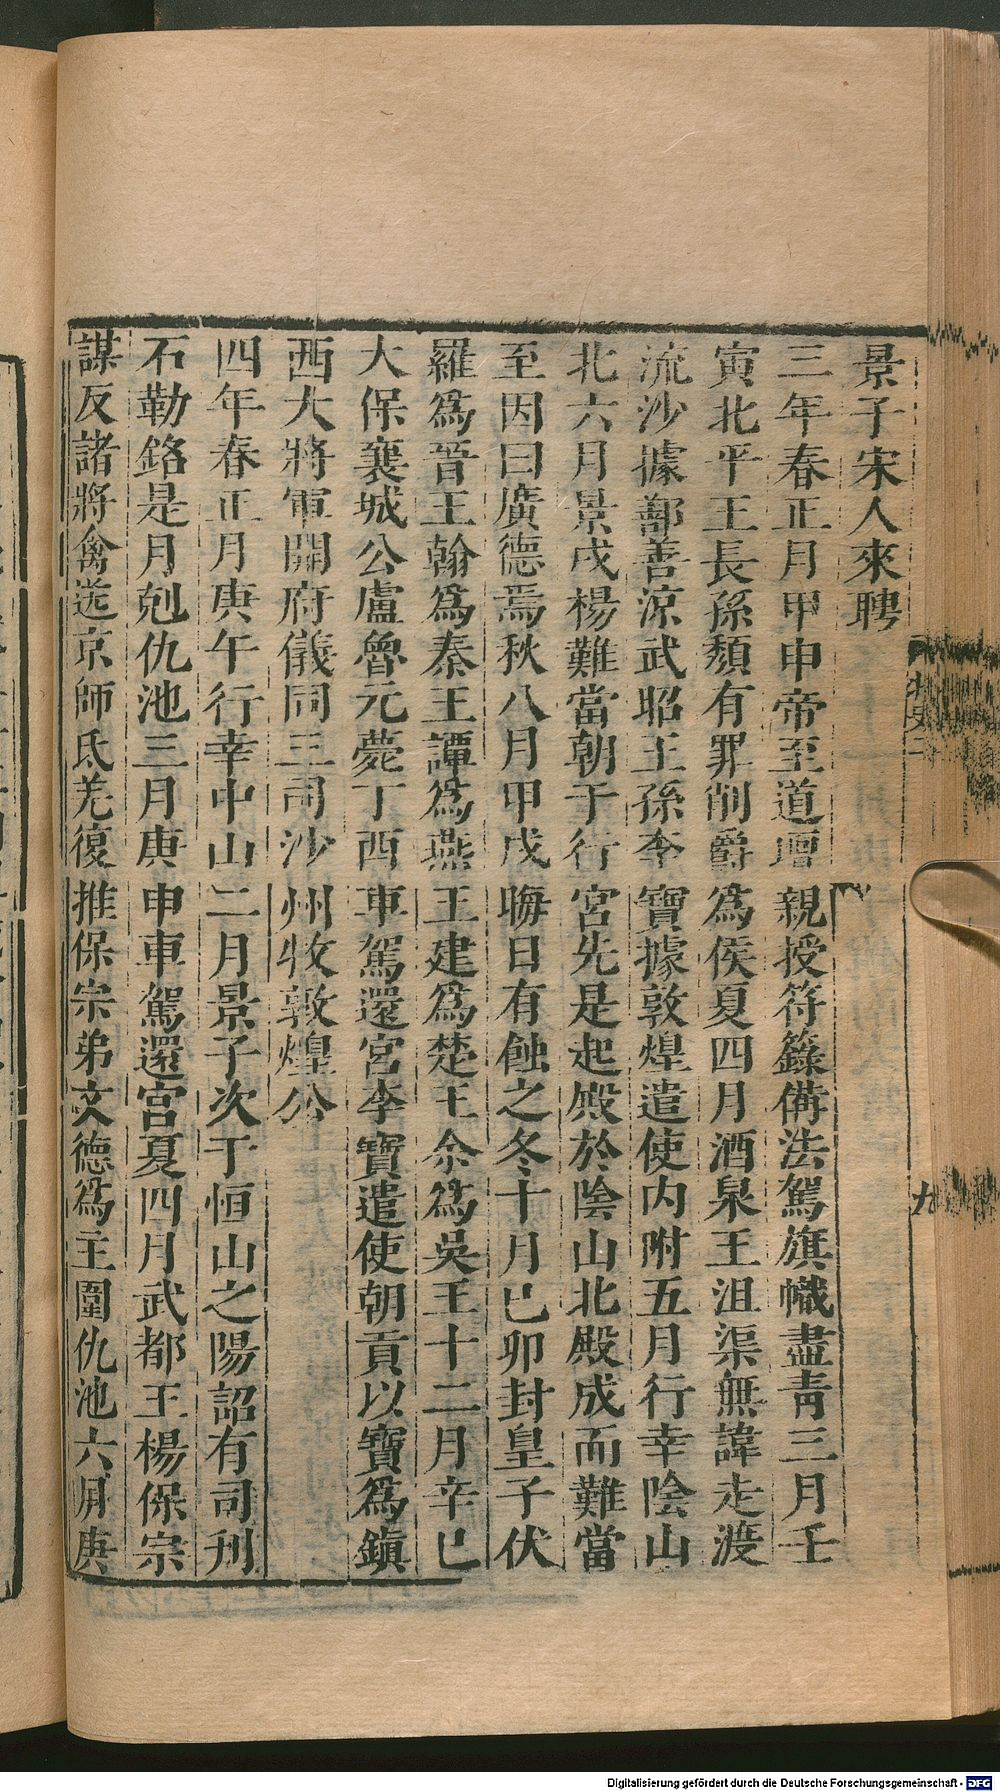 景子宋人來聘
三年春正月甲申帝至道壇親授符籙備法駕旗幟盡靑三月壬
寅北平王長孫頹有罪削爵爲侯夏四月酒泉王沮渠無諱走渡
流沙據鄯善涼武昭王孫李寶據敦煌遣使內附五月行幸陰山
北六月景戌楊難當朝于行宮先是起殿於陰山北殿成而難當
至因曰廣德焉秋八月甲戌晦日有蝕之冬十月已卯封皇子伏
羅爲晉王翰爲秦王譚爲燕王建爲楚王余爲吳王十二月辛巳
大保襄城公盧魯元薨丁酉車駕還宮李寶遣使朝貢以寶爲鎭
西大將軍開府儀同三司沙州牧敦煌公
四年春正月庚午行幸中山二月景子次于恒山之陽詔有司刋
石勒銘是月剋仇池三月庚申車駕還宮夏四月武都王楊保宗
謀反諸將禽送京師氐羌復推保宗弟文德爲主圍仇池六月庚
九
Digitalisierung gefördert durch die Deutsche Forschungsgemeinschaft - DFG